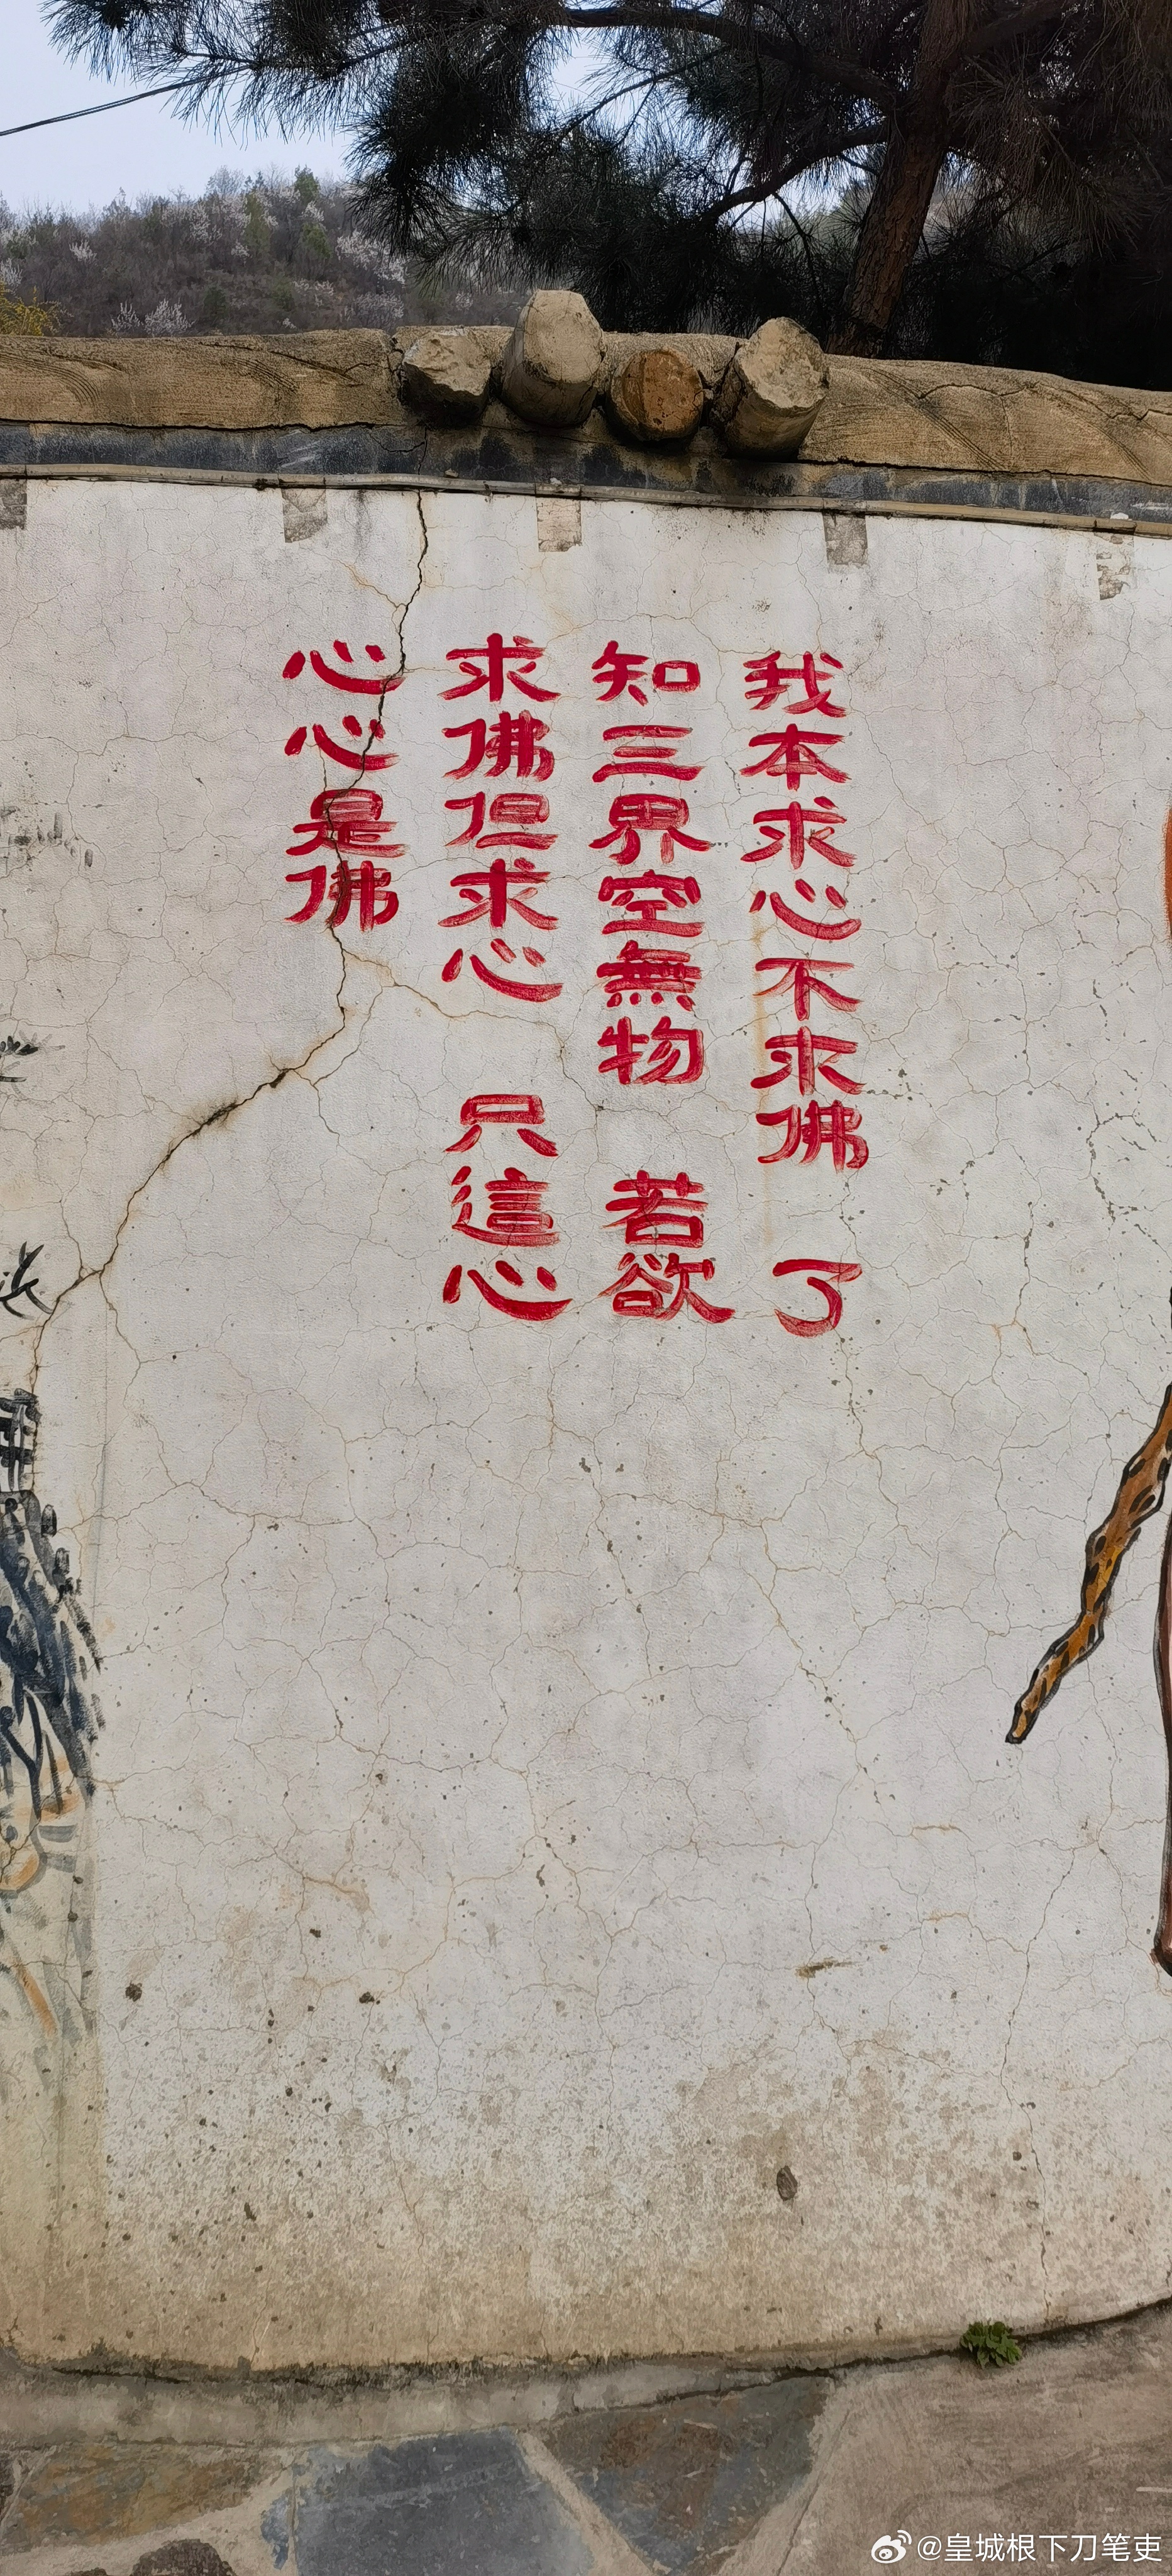 我本求心不求佛 了
知三界空無物 若欲
求佛但求心 只這心
心心是佛
@皇城根下刀笔吏